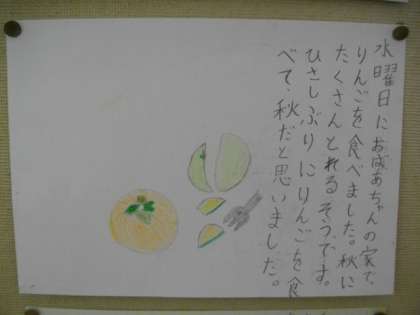 水曜日にお成あちゃんの家で、
りんごを食べました。秋に
たくさんとれるそうです。
ひさしぶりにりんごを食
べて、秋だと思いました。